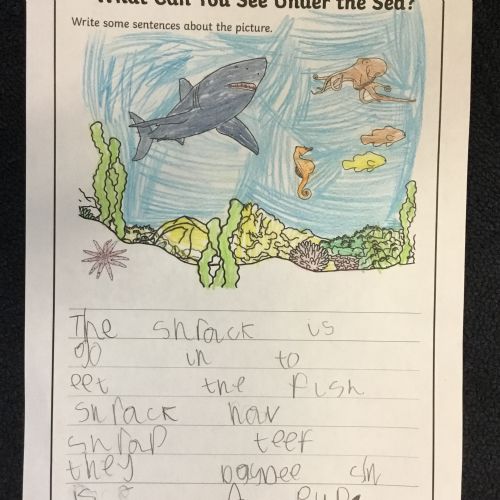 What Can You See Under the Sea?
Write some sentences about the picture.
The shrack is
go in to
eet the fish
shrack hav
shrap teef
they
is a